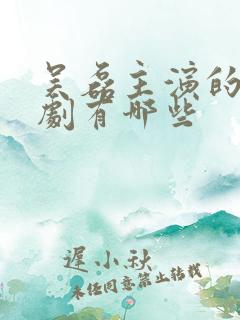 吴磊主演的
劇有哪些
遲小秋
未经同意禁止转载